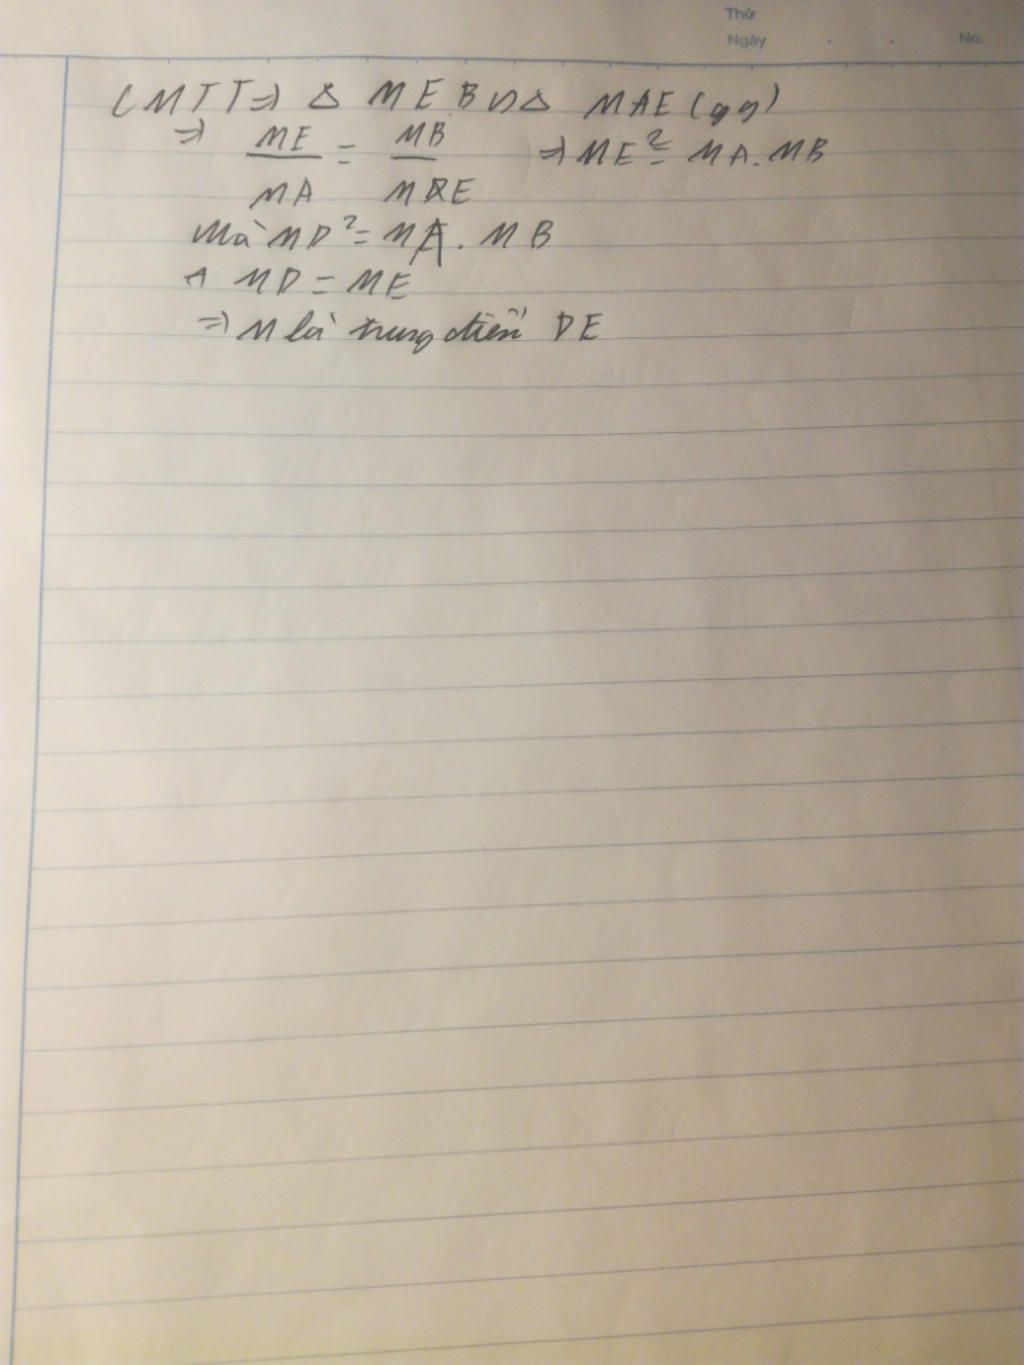 Thứ
Ngày . . No.
CMTT => Δ MEB ∽ Δ MAE (gg)
=> ME/MA = MB/ME => ME² = MA. MB
Mà MD² = MA. MB
MD = ME
=> M là trung điểm DE